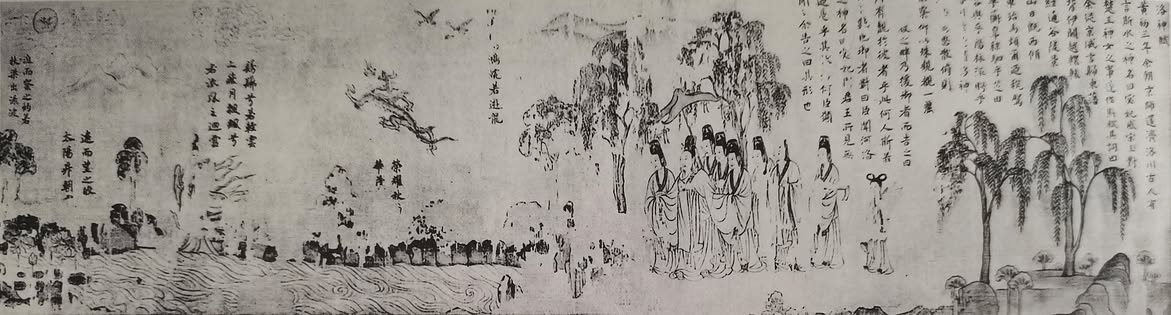 洛神賦
黃初三年余朝京師還濟洛川古人有
言斯水之神名曰宓妃感宋玉對
楚王神女之事遂作斯賦其詞曰
余從京域言歸東藩
背伊闕越轘轅
經通谷陵景
山日既西傾
車殆馬煩爾迺稅駕
乎蘅皋秣駟乎芝田
容與乎陽林流眄乎
神
思散俯則
察仰以殊觀覩一麗
之畔乃援御者而告之曰
有覿於彼者乎此何人斯若
艷也御者對曰臣聞河洛
之神名曰宓妃則君王所見無
迺是乎其狀若何臣願
聞余告之曰其形也
鴻婉若遊龍
榮耀秋
華
髣髴兮若輕雲
之蔽月飄颻兮
若流風之迴雪
遠而望之皎
太陽升朝
迫而察之灼若
扶渠出淥波